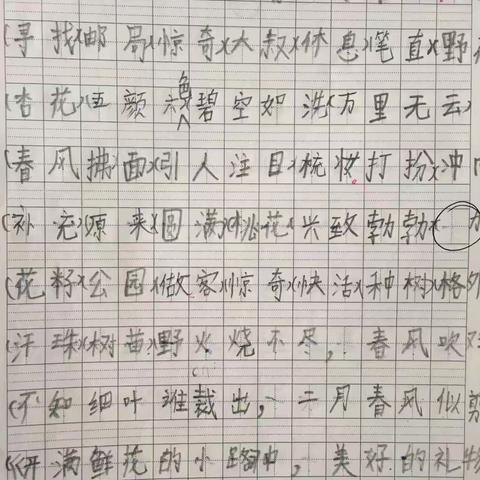 (寻找)(邮局)(惊奇)(大叔)(休息)(笔直)(野
(杏花)(五颜六色)(碧空如洗)(万里无云)
(春风拂面)(引人注目)(梳妆打扮)(冲
(补充)(原来)(圆满)(桃花)(兴致勃勃)(
(花籽)(公园)(做客)(惊奇)(快活)(种树)(格外
(汗珠)(树苗)(野火烧不尽,春风吹
(不知细叶谁裁出,二月春风似剪
(开满鲜花的小路中,美好的礼物